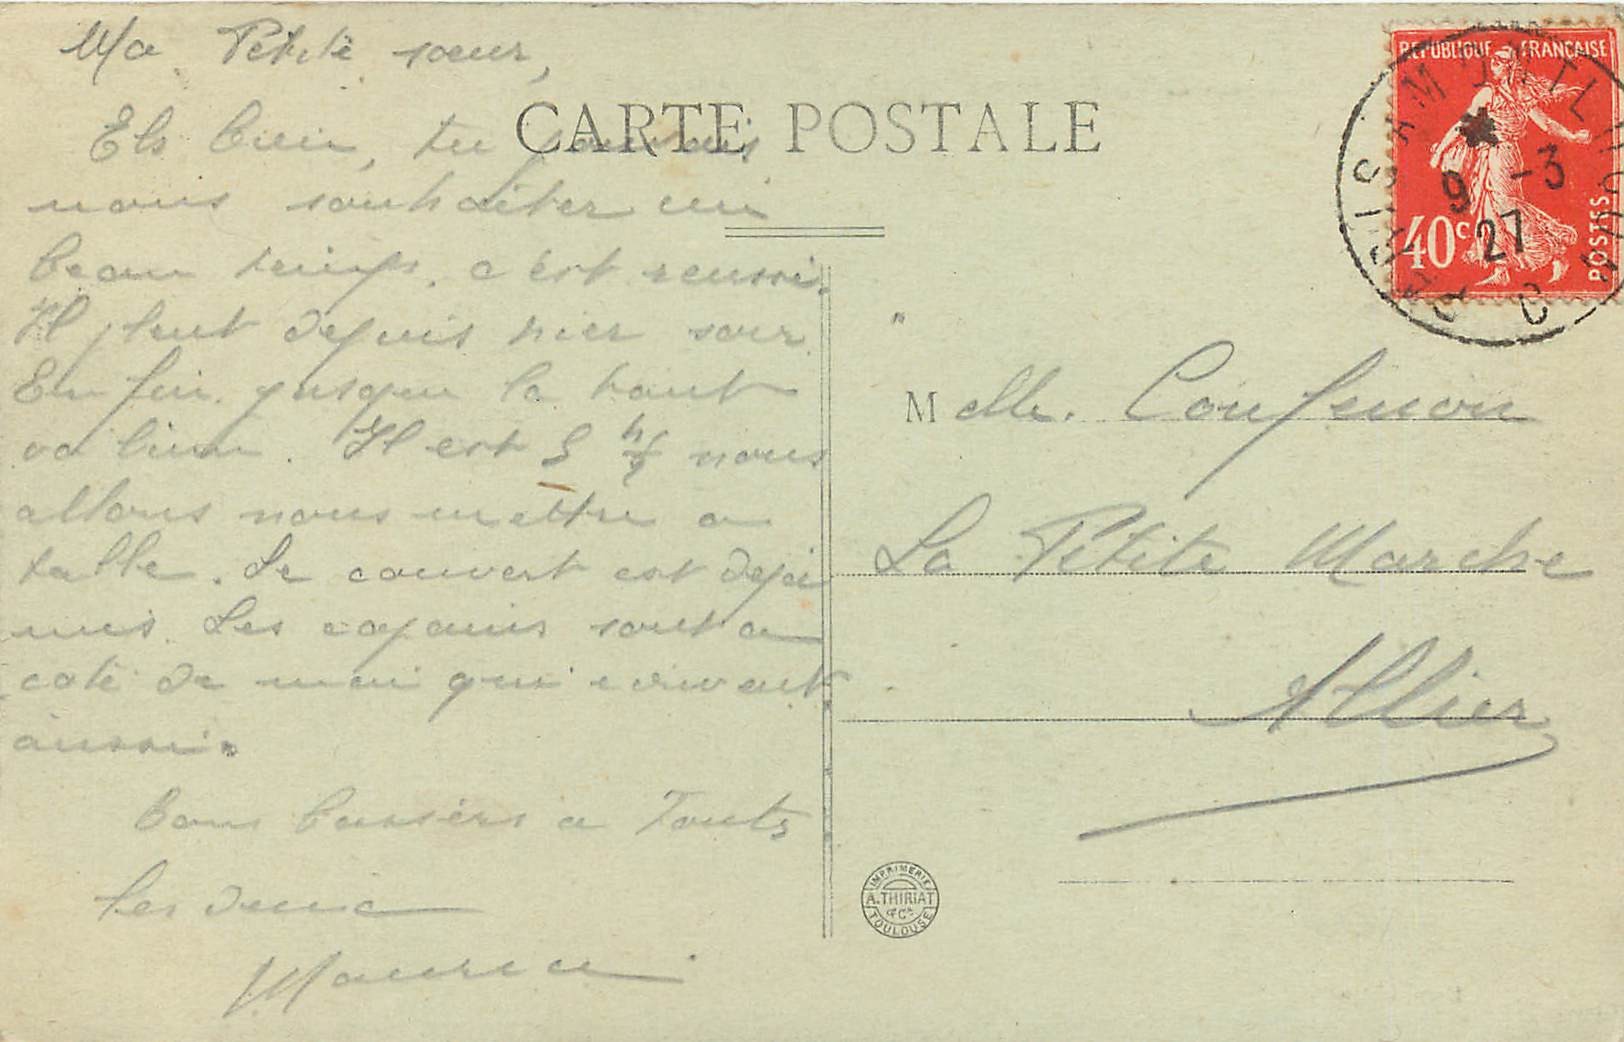 Ma Petite sœur,
CARTE POSTALE
Eh bien, tu pouvais
nous souhaiter un
beau temps. c'est reussi.
Il pleut depuis hier soir
Enfin jusque la tout
va bien. Il est 5 h ½ nous
allons nous mettre a
table. Le couvert est deja
mis. Les copains sont a
coté de moi qui ecrivent
aussi.
Bons baisers a Touts
les deux
Maurice
REPUBLIQUE FRANÇAISE
40c
POSTES
9 -3
27
Melle. Confenon
La Petite Marche
Allier
IMPRIMERIE
A. THIRIAT
& Cie
TOULOUSE